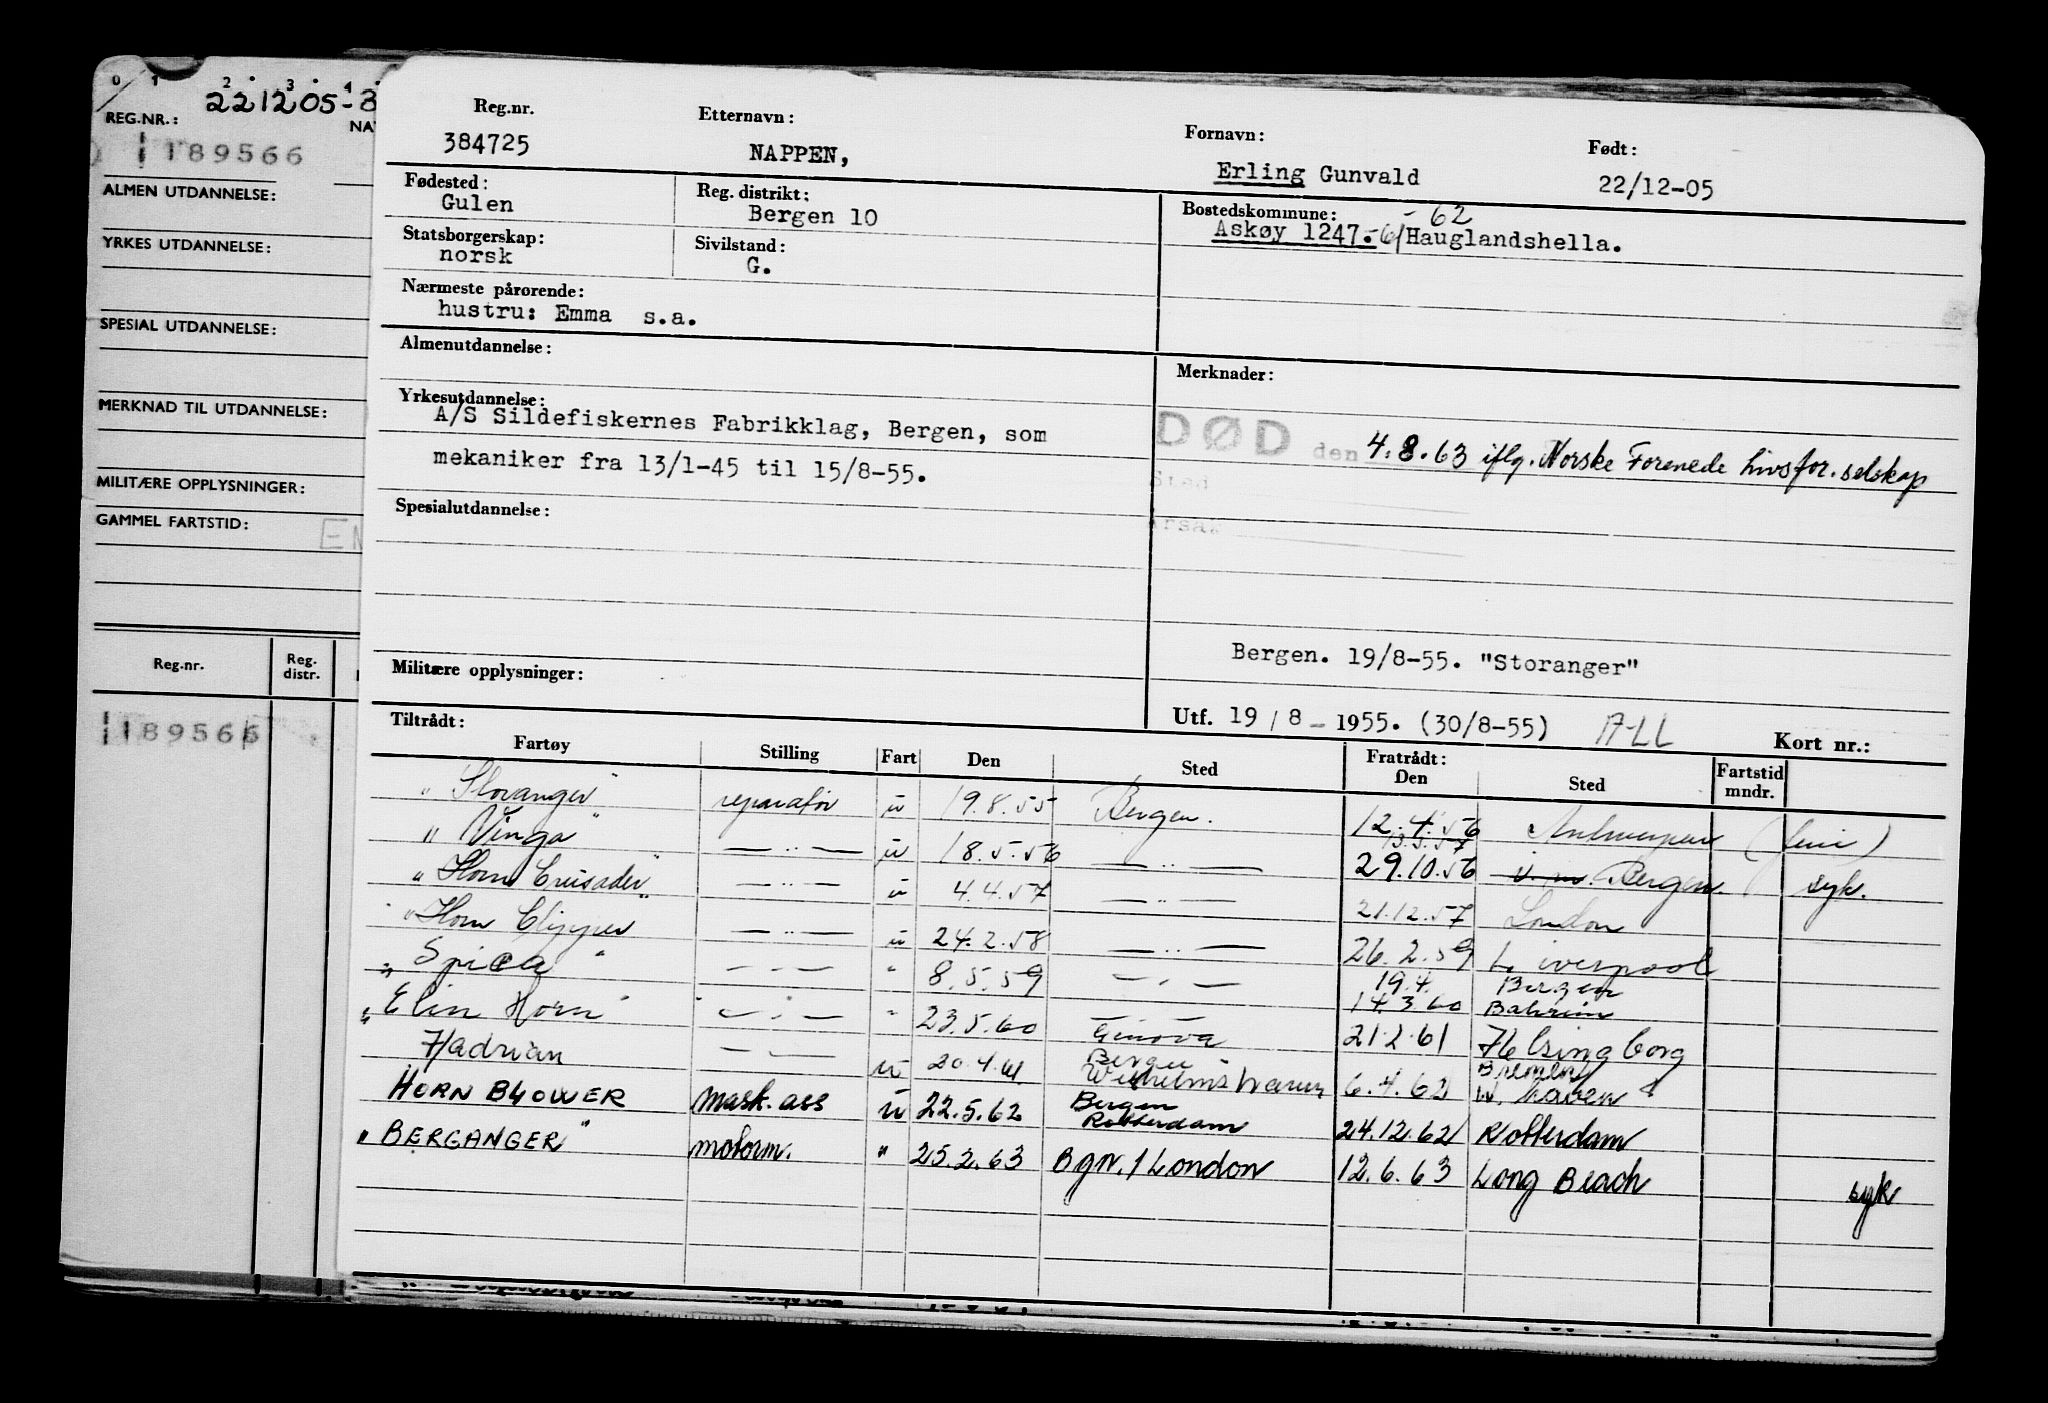 0 1 2 3 4
221205-8
REG.NR.:
NA
189566
ALMEN UTDANNELSE:
YRKES UTDANNELSE:
SPESIAL UTDANNELSE:
MERKNAD TIL UTDANNELSE:
MILITÆRE OPPLYSNINGER:
GAMMEL FARTSTID:
Reg.nr. Reg. distr.
189566
Reg.nr. Etternavn: Fornavn: Født:
384725 NAPPEN, Erling Gunvald 22/12-05
Fødested: Reg. distrikt: Bostedskommune: -62
Gulen Bergen 10 Askøy 1247.-61/Hauglandshella.
Statsborgerskap: Sivilstand:
norsk G.
Nærmeste pårørende:
hustru: Emma s.a.
Almenutdannelse: Merknader:
Yrkesutdannelse:
A/S Sildefiskernes Fabrikklag, Bergen, som
mekaniker fra 13/1-45 til 15/8-55.
DØD den 4.8.63 iflg. Norske Forenede Livsfor.selskap
Sted
Årsak
Spesialutdannelse:
Bergen. 19/8-55. "Storanger"
Militære opplysninger:
Utf. 19/8-1955. (30/8-55) A-LL Kort nr.:
Tiltrådt: Fratrådt:
Fartøy Stilling Fart Den Sted Den Sted Fartstid mndr.
"Storanger" reparatør u 19.8.55 Bergen. 12.4.56 Antwerpen (ferie)
"Vinga" —"— u 18.5.56 —"— 29.10.56 Bergen. syk.
"Horn Crusader" —"— u 4.4.57 —"— 21.12.57 London
"Horn Clipper" —"— u 24.2.58 —"— 26.2.59 Liverpool
"Spica" —"— " 8.5.59 —"— 19.4. Bergen
14.3.60 Bahrein
"Elin Horn" —"— " 23.5.60 Genova 21.2.61 Helsingborg
Hadrian —"— u 20.4.61 Bergen Wilhelmshaven 6.4.62 Bremen W.haven
HORN BLOWER mask.ass u 22.5.62 Bergen Rotterdam 24.12.62 Rotterdam
"BERGANGER" motorm. " 25.2.63 Bgn./London 12.6.63 Long Beach syk